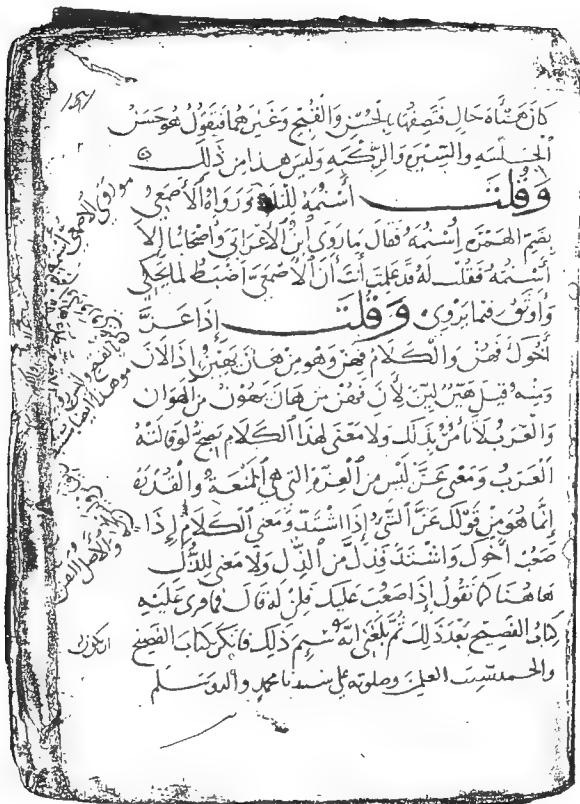 كان هشاة حال فتصفها بالحسن والقبح وغيرهما فيقول هو حسن
الجلسة والسيرة والركبة وليس هذا من ذلك
وقلت أسنمة للبلد ورواه الأصمعي
بضم الهمزة أسنمة فقال ما روى ابن الأعرابي وأصحابنا إلا
أسنمة فقلت له قد علمت أنت أن الأصمعي أضبط لما يحكي
وأوثق فيما يروي وقلت إذا عز
أخوك فهن والكلام فهن وهو من هان يهين إذا لان
ومنه قيل هين لين لأن فهن من هان يهون من الهوان
والعرب لا تأمر بذلك ولا معنى لهذا الكلام يصح لو قالته
العرب ومعنى عز ليس من العزة التي هي المنعة والقدرة
إنما هو من قولك عز الشيء إذا اشتد ومعنى الكلام إذا
صعب أخوك واشتد فذل من الذل ولا معنى للذل
هاهنا كما تقول إذا صعب عليك فلن له قال فما قرئ عليه
كتاب الفصيح بعد ذلك ثم بلغني أنه سئم ذلك فأنكر كتاب الفصيح
والحمد لله رب العلمين وصلوته على سيدنا محمد وآله وسلم